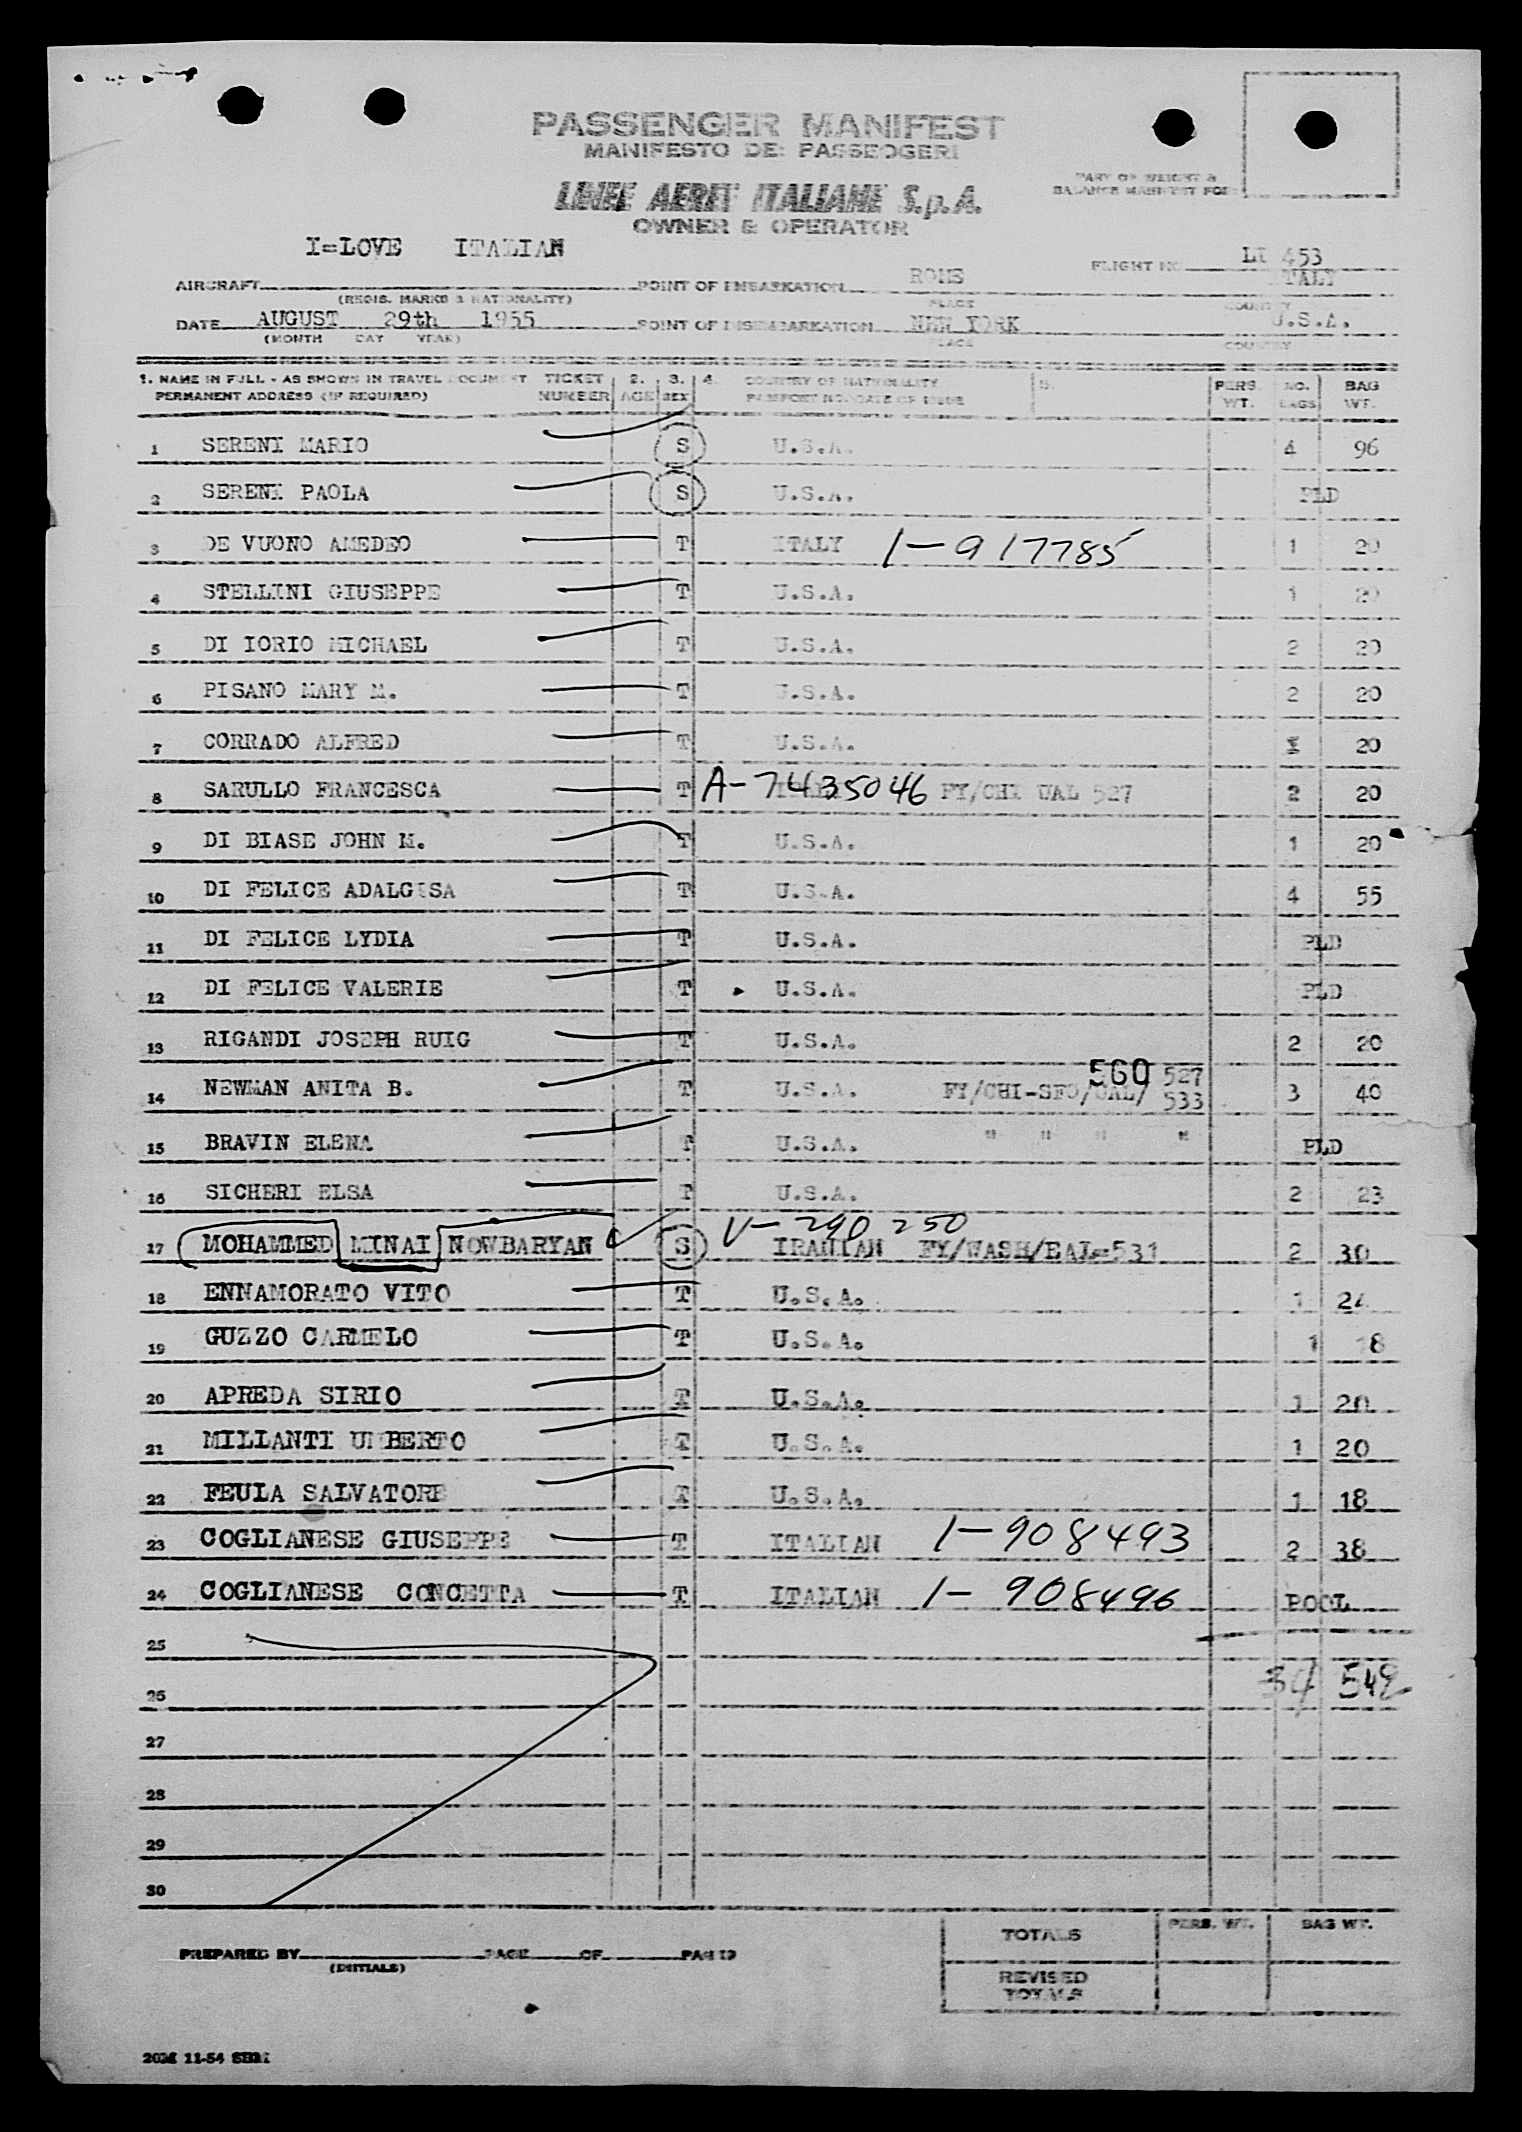 PASSENGER MANIFEST
MANIFESTO DEI PASSEGGERI
LINEE AEREE ITALIANE S.p.A.
OWNER & OPERATOR
PART OF WEIGHT &
BALANCE MANIFEST FOR
I=LOVE ITALIAN
AIRCRAFT
(REGIS. MARKS & NATIONALITY)
POINT OF EMBARKATION ROME
PLACE
FLIGHT NO LI 453
ITALY
COUNTRY
DATE AUGUST 29th 1955
(MONTH DAY YEAR)
POINT OF DISEMBARKATION NEW YORK
PLACE
U.S.A.
COUNTRY
1. NAME IN FULL - AS SHOWN IN TRAVEL DOCUMENT TICKET 2. 3. 4. COUNTRY OF NATIONALITY 5. PERS. NO. BAG
PERMANENT ADDRESS (IF REQUIRED) NUMBER AGE SEX PASSPORT NO. DATE OF ISSUE WT. BAGS WT.
1 SERENI MARIO S U.S.A. 4 96
2 SERENI PAOLA S U.S.A. PLD
3 DE VUONO AMEDEO T ITALY 1-917785 1 20
4 STELLINI GIUSEPPE T U.S.A. 1 20
5 DI IORIO MICHAEL T U.S.A. 2 20
6 PISANO MARY M. T U.S.A. 2 20
7 CORRADO ALFRED T U.S.A. 1 20
8 SARULLO FRANCESCA T A-7435046 FY/CHI UAL 527 2 20
9 DI BIASE JOHN M. T U.S.A. 1 20
10 DI FELICE ADALGISA T U.S.A. 4 55
11 DI FELICE LYDIA T U.S.A. PLD
12 DI FELICE VALERIE T U.S.A. PLD
13 RIGANDI JOSEPH RUIG T U.S.A. 2 20
14 NEWMAN ANITA B. T U.S.A. FY/CHI-SFO/UAL/ 560 527 533 3 40
15 BRAVIN ELENA T U.S.A. " " " " PLD
16 SICHERI ELSA T U.S.A. 2 23
V-290250
17 MOHAMMED MINAI NOWBARYAN S IRANIAN FY/WASH/EAL=531 2 30
18 ENNAMORATO VITO T U.S.A. 1 24
19 GUZZO CARMELO T U.S.A. 1 18
20 APREDA SIRIO T U.S.A. 1 20
21 MILLANTI UMBERTO T U.S.A. 1 20
22 FEULA SALVATORE T U.S.A. 1 18
23 COGLIANESE GIUSEPPE T ITALIAN 1-908493 2 38
24 COGLIANESE CONCETTA T ITALIAN 1-908496 POOL
25
34 542
26
27
28
29
30
TOTALS PERS. WT. BAG WT.
PREPARED BY PAGE OF PAGES
(INITIALS)
REVISED
TOTALS
20M 11-54 SBM